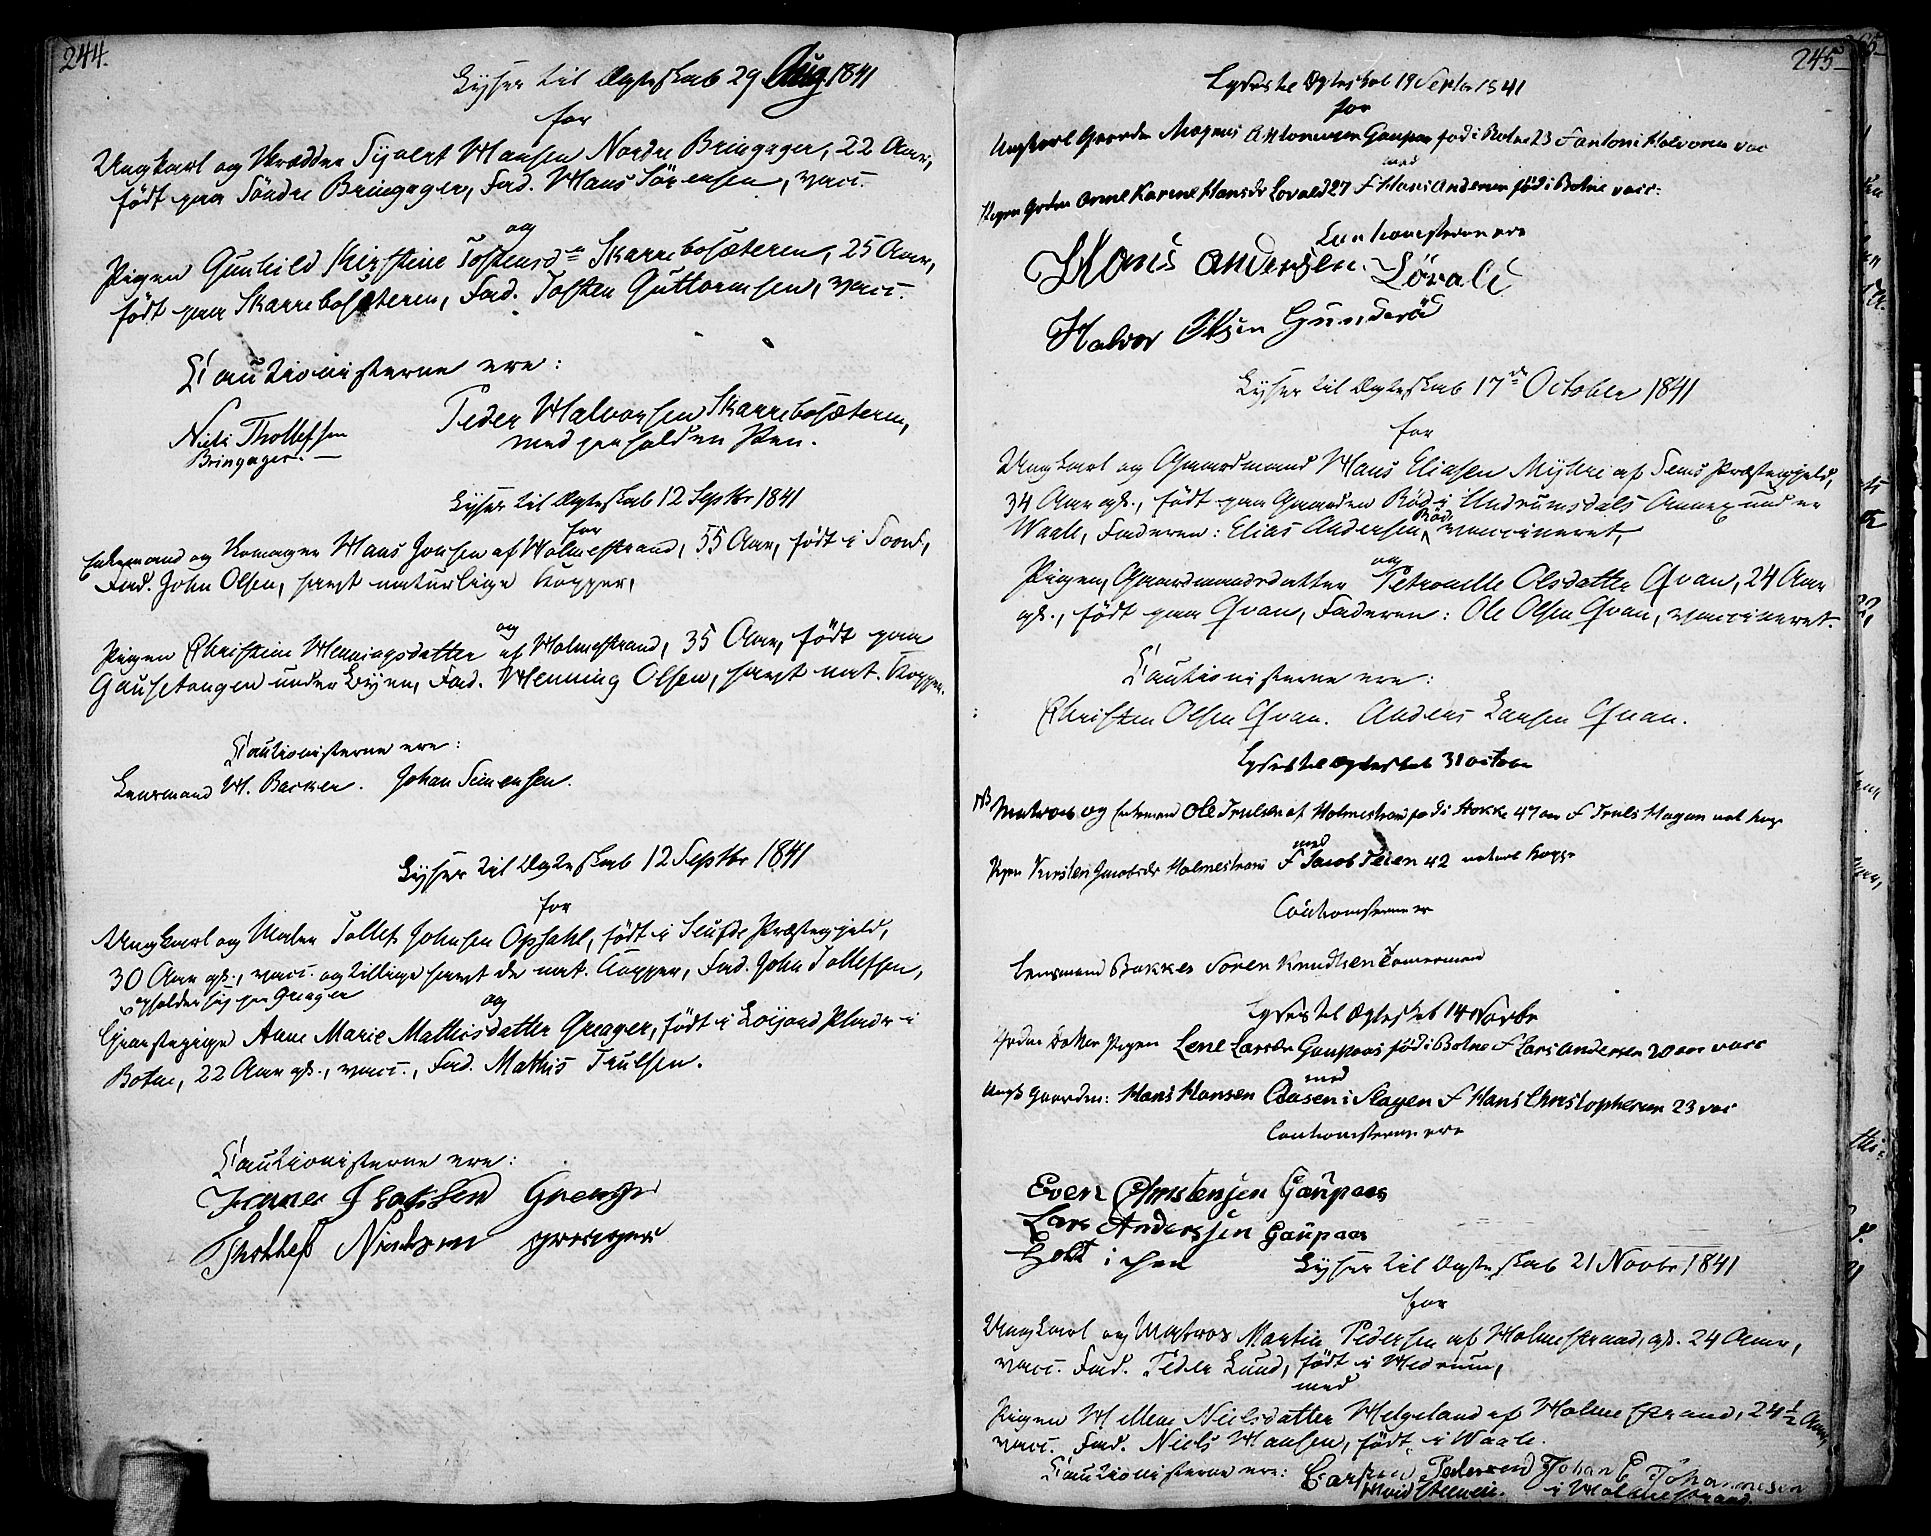 244.
Lyser til Ægteskab 29 Aug. 1841
for
Ungkarl og Skrædder Syvert Hansen Nordre Bringager, 22 Aar,
født paa Søndre Bringager, Fad. Hans Sørensen, vacc.
og
Pigen Gunhild Kirstine Tostensd. Skarrebosæteren, 25 Aar,
født paa Skarrebosæteren, Fad. Tosten Guttormsen, vacc.
Cautionisterne ere:
Niels Thollefsen
Bringager.
Peder Halvorsen Skarrebosæteren,
med paaholden Pen.
Lyser til Ægteskab 12 Septbr 1841
for
Enkemand og Skomager Hans Jonsen af Holmestrand, 55 Aar, født i
Fad. John Olsen, havt naturlige Kopper,
og
Pigen Christine Henningsdatter af Holmestrand, 35 Aar, født paa
Gausetangen under Byen, Fad. Henning Olsen, havt nat. Kopper.
Cautionisterne ere:
Lensmand H. Backer. Johan Simensen.
Lyser til Ægteskab 12 Septbr 1841
for
Ungkarl og Maler Tollef Johnsen Opsahl, født i Præstegjeld,
30 Aar gl., vacc. og tillige havt de nat. Kopper, Fad. John Tollefsen,
opholder sig paa Greager
og
Tjenstepige Anne Marie Mathisdatter Greager, født i Plads i
Botne, 22 Aar gl., vacc., Fad. Mathis Trulsen.
Cautionisterne ere:
Isacksen Greager
Thollef Nielsen greager
245
Lyses til Ægteskab 19 Septbr 1841
for
Ungkarl Gaardm Mogens Anthonisen Gaupaas fød i Botne 23 F Antoni Halvorsen vac
med
Pigen Grdm Anne Karine Hansdr Lovald 27 F Hans Andersen fød i Botne vacc:
Cautionisterne ere
Hans Andersen Løvald
Halvor Olsen Gunderød
Lyser til Ægteskab 17de October 1841
for
Ungkarl og Gaardmand Hans Eliasen Myhre af Sems Præstegjeld,
34 Aar gl., født paa Gaarden Röd i Undrumsdals Annex under
Waale, Faderen: Elias Andersen Röd, vaccineret,
og
Pigen, Gaardmandsdatter Petronelle Olsdatter Qvan, 24 Aar
gl., født paa Qvan, Faderen: Ole Olsen Qvan, vaccineret.
Cautionisterne ere:
Christen Olsen Qvan. Anders Larsen Qvan.
Lyses til Ægteskab 31 octobr
NB Matros og Enkemand Ole Trulsen af Holmestrand fød i Stokke 47 aar F Truls Hagan nat kop
med
Pigen Kirsten Jacobsdr Holmestrand F Jacob Teien 42 naturl kopper
Cautionisterne er
Lensmand Bakker Søren Knudsen Tømermand
Lyses til Ægteskab 14 Novbr
Grdm Datter Pigen Lene Larsdr Gaupaas fød i Botne F Lars Andersen 20 aar vacc
med
Ungk Gaardm: Hans Hansen Aasen i Slagen F Hans Christophersen 23 vac
Cautionisterne ere
Even Christensen Gaupaas
Lars Anderssen Gaupaas
Holt i Pen
Lyser til Ægteskab 21 Novbr 1841
for
Ungkarl og Matros Martin Pedersen af Holmestrand, gl. 24 Aar,
vacc. Fad. Peder Lund, født i Hedrum,
med
Pigen Hellene Nielsdatter Helgeland af Holmestrand, 24½ Aar,
vacc. Fad. Niels Hansen, født i Waale.
Cautionisterne ere: Carsten Pedersen Johan E Johannesen
i Holmestrand.